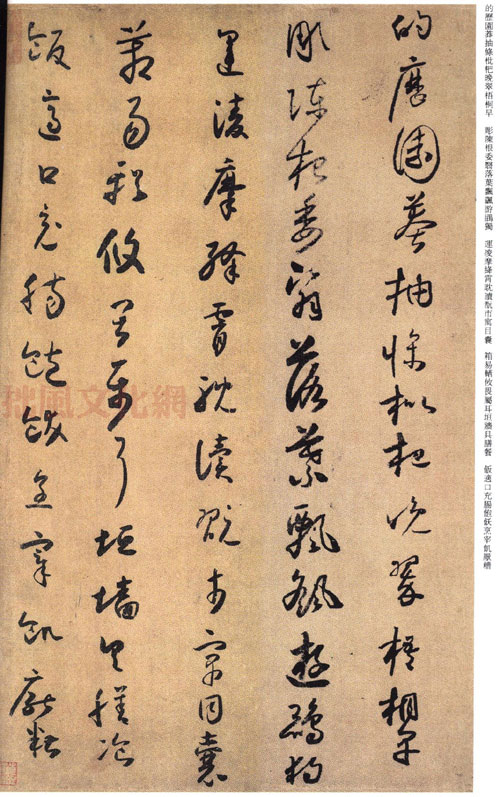 的歷園莽抽條枇杷晚翠梧桐早 彫陳根委翳落葉飄颻遊鵾獨 運凌摩絳霄耽讀翫市寓目囊 箱易輶攸畏屬耳垣牆具膳餐 飯適口充腸飽飫烹宰飢厭糟
的歷園莽抽條枇杷晚翠梧桐早
彫陳根委翳落葉飄颻遊鵾獨
運凌摩絳霄耽讀翫市寓目囊
箱易輶攸畏屬耳垣牆具膳餐
飯適口充腸飽飫烹宰飢厭糟
拙風文化網